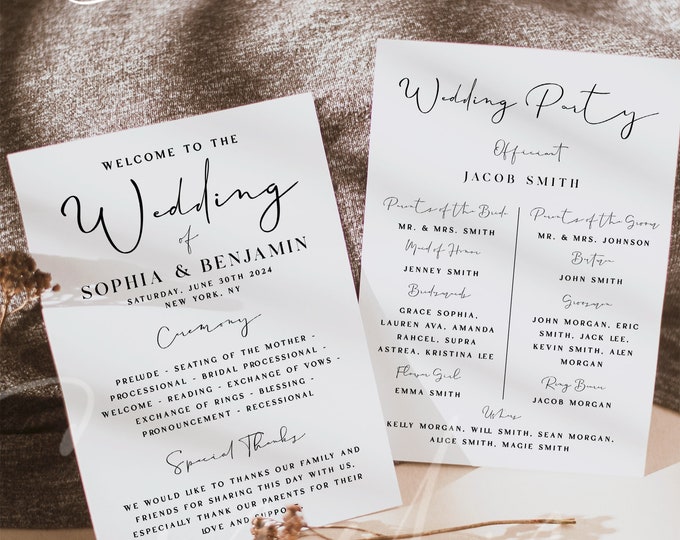 WELCOME TO THE
Wedding
of
SOPHIA & BENJAMIN
SATURDAY, JUNE 30TH 2024
NEW YORK, NY
Ceremony
PRELUDE - SEATING OF THE MOTHER -
PROCESSIONAL - BRIDAL PROCESSIONAL -
WELCOME - READING - EXCHANGE OF VOWS -
EXCHANGE OF RINGS - BLESSING -
PRONOUNCEMENT - RECESSIONAL
Special Thanks
WE WOULD LIKE TO THANKS OUR FAMILY AND
FRIENDS FOR SHARING THIS DAY WITH US,
ESPECIALLY THANK OUR PARENTS FOR THEIR
LOVE AND SUPPORT
Wedding Party
Officiant
JACOB SMITH
Parents of the Bride
MR. & MRS. SMITH
Maid of Honor
JENNEY SMITH
Bridesmaids
GRACE SOPHIA,
LAUREN AVA, AMANDA
RAHCEL, SUPRA
ASTREA, KRISTINA LEE
Flower Girl
EMMA SMITH
Parents of the Groom
MR. & MRS. JOHNSON
JOHN SMITH
Groomsmen
JOHN MORGAN, ERIC
SMITH, JACK LEE,
KEVIN SMITH, ALEN
MORGAN
Ring Bearer
JACOB MORGAN
Ushers
KELLY MORGAN, WILL SMITH, SEAN MORGAN,
ALICE SMITH, MAGIE SMITH